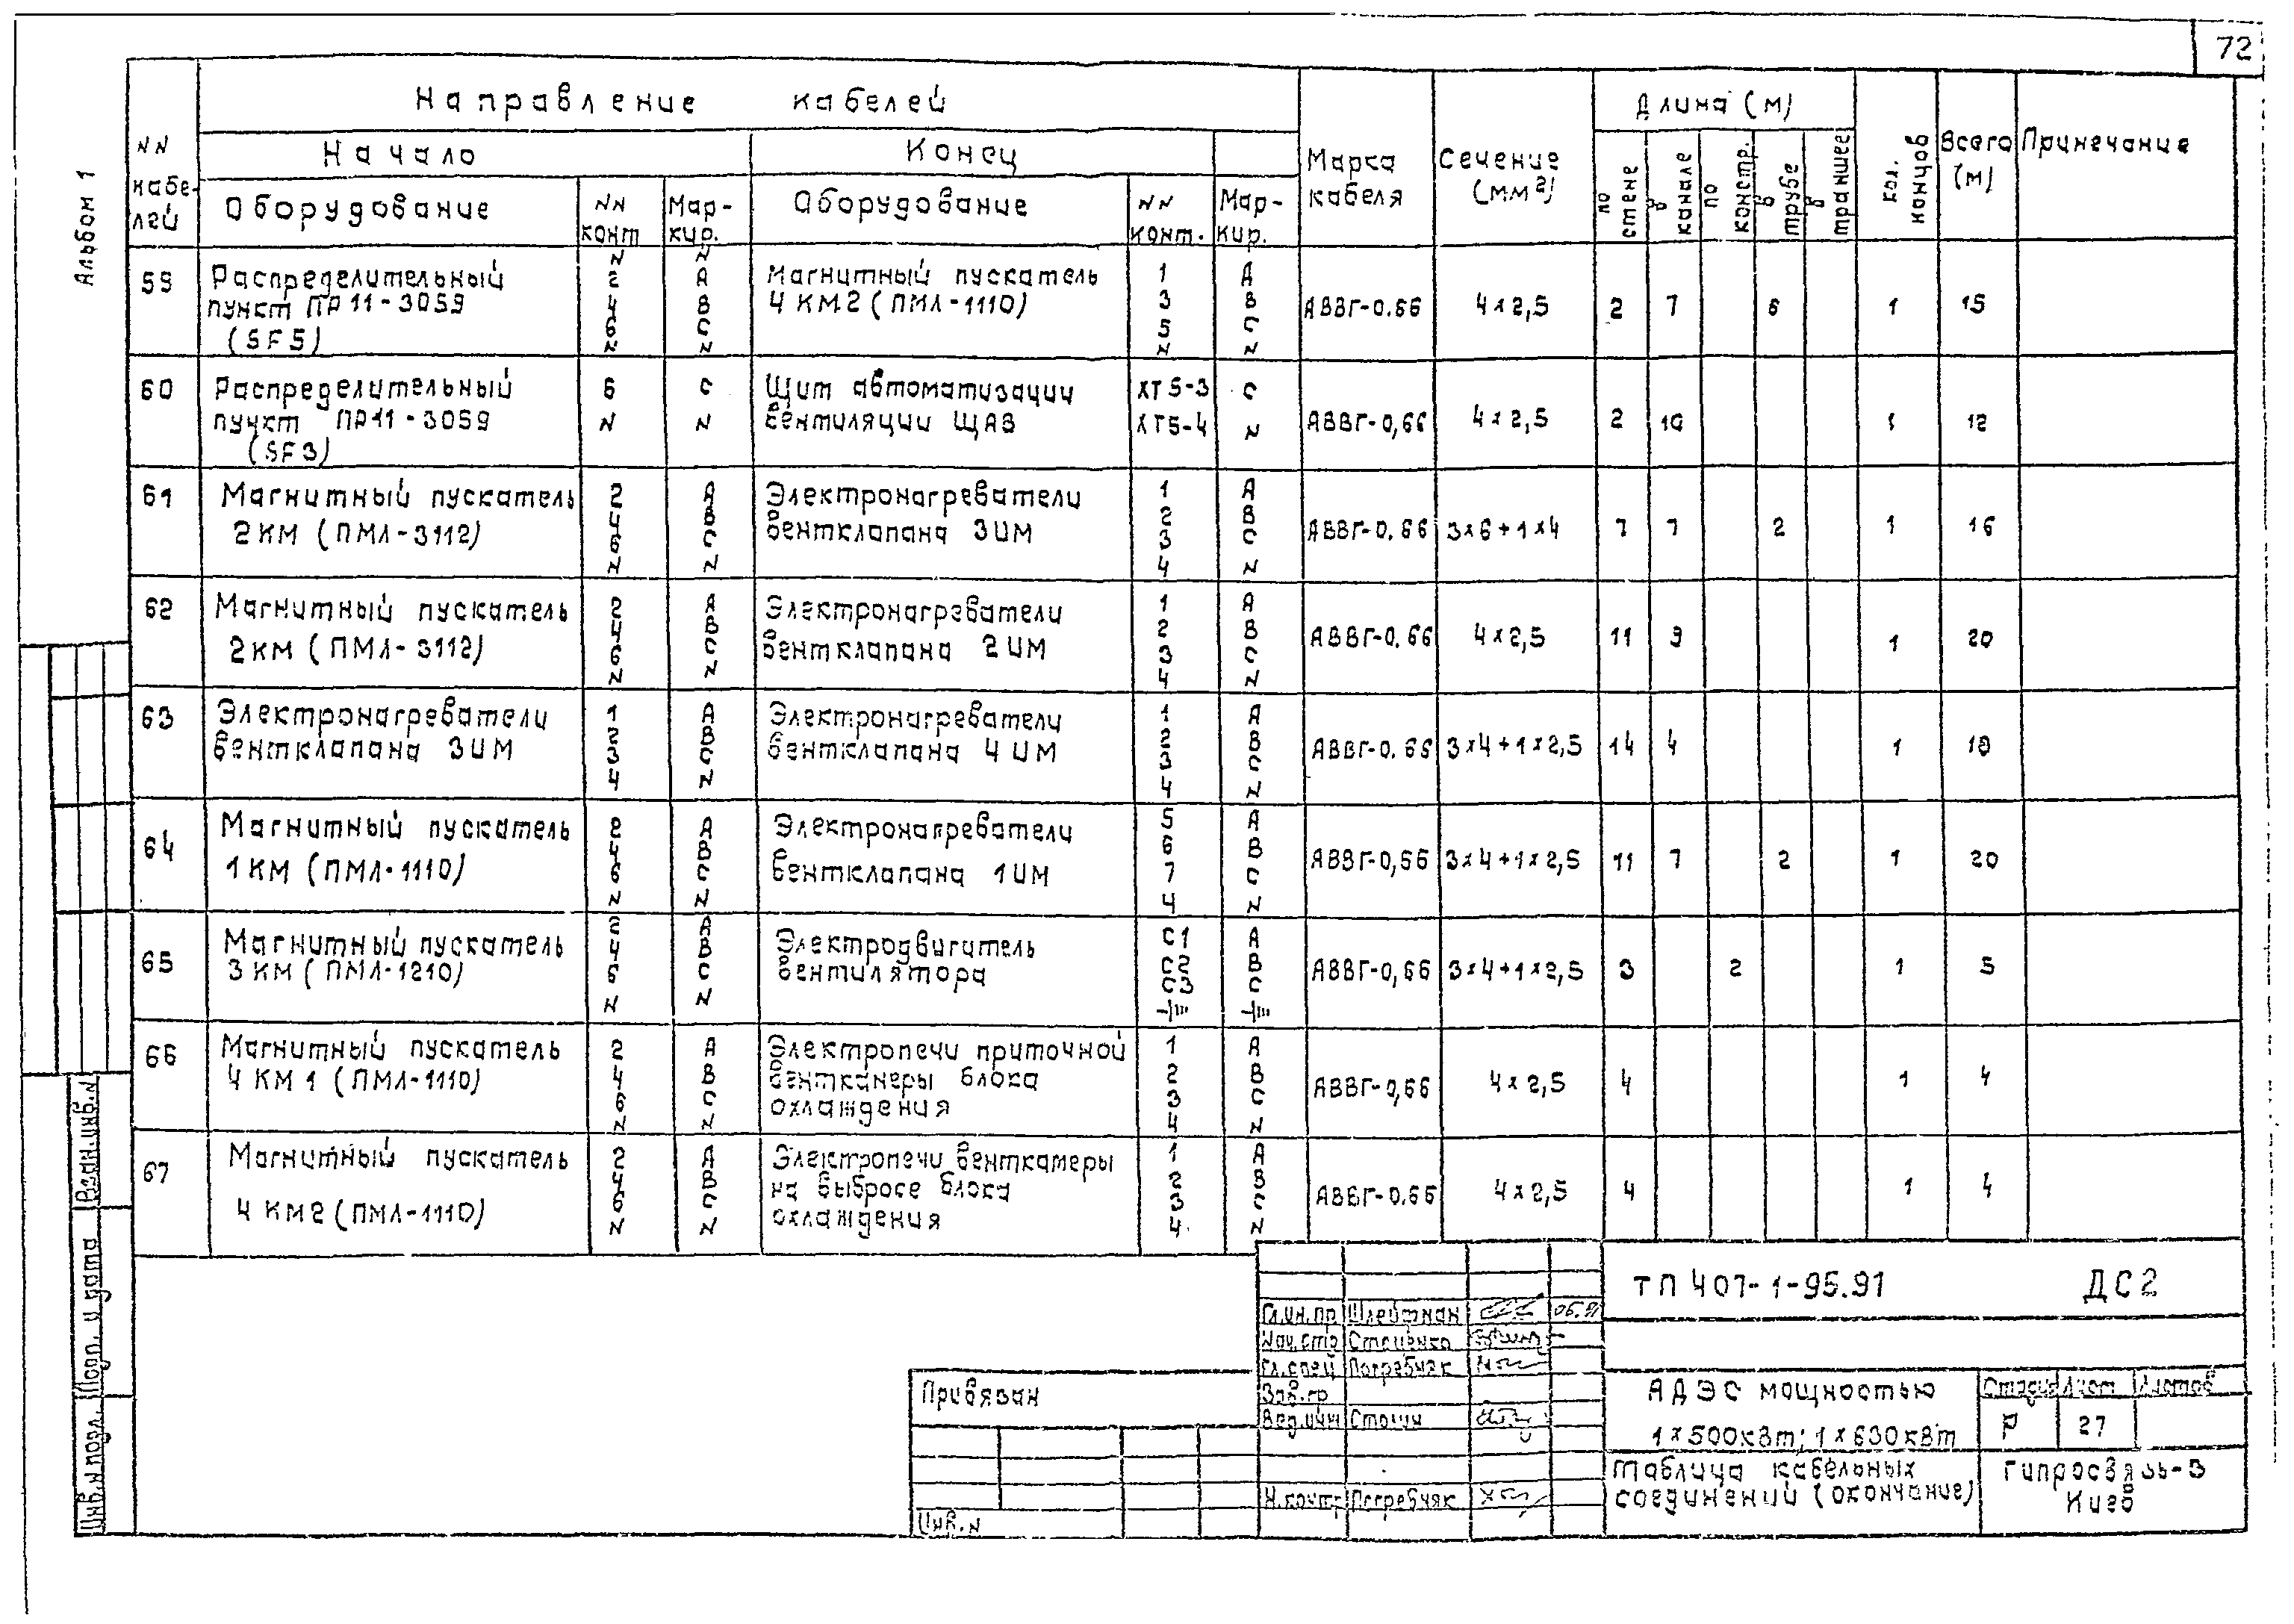 72
Альбом 1
NN кабелей
Направление кабелей
Начало
Конец
Оборудование
NN конт
Маркир.
Оборудование
NN конт.
Маркир.
Марка кабеля
Сечение (мм²)
Длина (м)
по стене
в канале
по констр.
в трубе
в траншее
кол. концов
Всего (м)
Примечание
59 Распределительный пункт ПР11-3059 (SF5) N 2 4 6 N N A B C N Магнитный пускатель 4КМ2 (ПМЛ-1110) 1 3 5 N A B C N АВВГ-0.66 4×2,5 2 7 6 1 15
60 Распределительный пункт ПР11-3059 (SF3) 6 N C N Щит автоматизации вентиляции ЩАВ ХТ5-3 ХТ5-4 C N АВВГ-0,66 4×2,5 2 10 1 12
61 Магнитный пускатель 2КМ (ПМЛ-3112) 2 4 6 N A B C N Электронагреватели вентклапана 3ИМ 1 2 3 4 A B C N АВВГ-0.66 3×6+1×4 7 7 2 1 16
62 Магнитный пускатель 2КМ (ПМЛ-3112) 2 4 6 N A B C N Электронагреватели вентклапана 2ИМ 1 2 3 4 A B C N АВВГ-0.66 4×2,5 11 9 1 20
63 Электронагреватели вентклапана 3ИМ 1 2 3 4 A B C N Электронагреватели вентклапана 4ИМ 1 2 3 4 A B C N АВВГ-0.66 3×4+1×2,5 14 4 1 18
64 Магнитный пускатель 1КМ (ПМЛ-1110) 2 4 6 N A B C N Электронагреватели вентклапана 1ИМ 5 6 7 4 A B C N АВВГ-0,66 3×4+1×2,5 11 7 2 1 20
65 Магнитный пускатель 3КМ (ПМЛ-1210) 2 4 6 N A B C N Электродвигатель вентилятора С1 С2 С3 A B C АВВГ-0,66 3×4+1×2,5 3 2 1 5
66 Магнитный пускатель 4КМ1 (ПМЛ-1110) 2 4 6 N A B C N Электропечи приточной венткамеры блока охлаждения 1 2 3 4 A B C N АВВГ-0,66 4×2,5 4 1 4
67 Магнитный пускатель 4КМ2 (ПМЛ-1110) 2 4 6 N A B C N Электропечи венткамеры на выбросе блока охлаждения 1 2 3 4 A B C N АВВГ-0.66 4×2,5 4 1 4
Взам.инв.N
Подп. и дата
Инв.N подл.
Привязан
Инв.N
Гл.ин.пр Шлейфман 06.91
Нач.отд Стаценко
Гл.спец Погребняк
Зав.гр
Вед.инж
Н.контр Погребняк
ТП 407-1-95.91 ДС2
АДЭС мощностью
1×500кВт; 1×630кВт
Стадия Лист Листов
Р 27
Таблица кабельных
соединений (окончание)
Гипросвязь-3
Киев